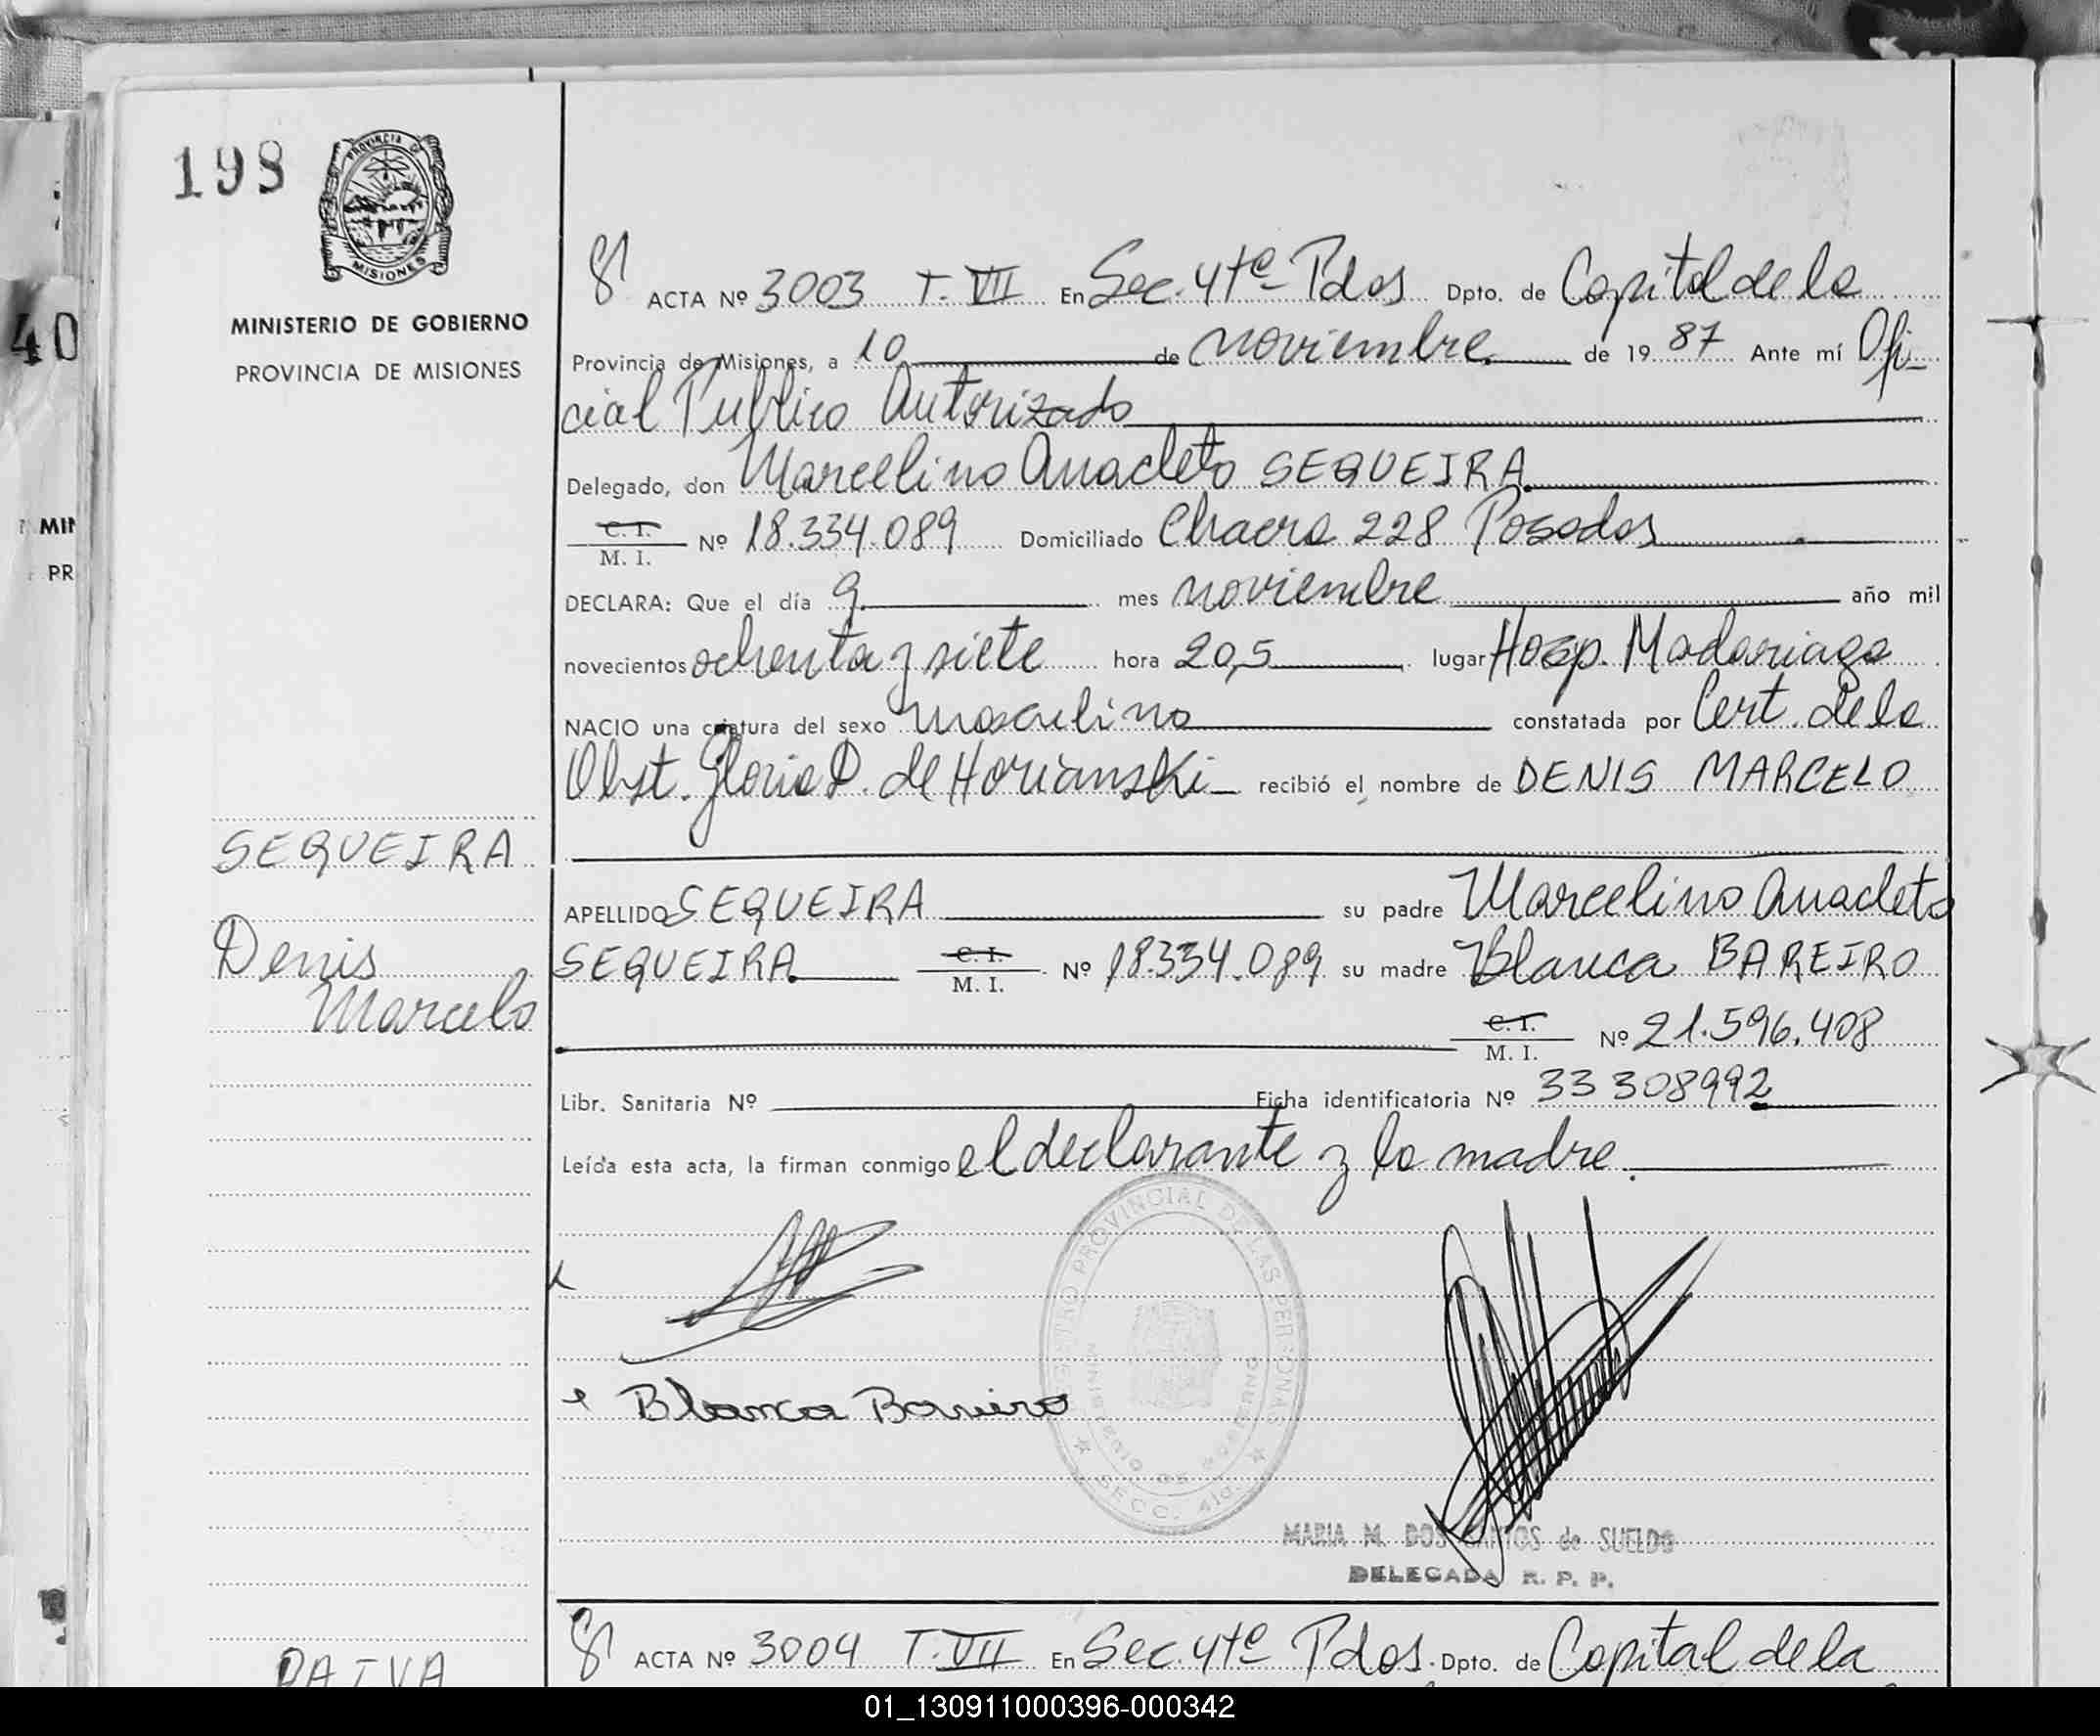 198
PROVINCIA DE
MISIONES
MINISTERIO DE GOBIERNO
PROVINCIA DE MISIONES
40
MIN
PR
SEQUEIRA
Denis
Marcelo
PAIVA
ACTA Nº 3003 T. VII En Sec. 4ta Pdas Dpto. de Capital de la
Provincia de Misiones, a 10 de noviembre de 1987 Ante mí Ofi-
cial Publico Autorizado
Delegado, don Marcelino Anacleto SEQUEIRA
C. I.
M. I. Nº 18.334.089 Domiciliado Chacra 228 Posadas
DECLARA: Que el día 9 mes noviembre año mil
novecientos ochenta y siete hora 20,5 lugar Hosp. Madariaga
NACIO una criatura del sexo masculino constatada por Cert. de la
Obst. Gloria D. de Horianski recibió el nombre de DENIS MARCELO
APELLIDO SEQUEIRA su padre Marcelino Anacleto
SEQUEIRA C. I. M. I. Nº 18.334.089 su madre Blanca BAREIRO
C. I.
M. I. Nº 21.596.408
Libr. Sanitaria Nº Ficha identificatoria Nº 33 308992
Leída esta acta, la firman conmigo el declarante y la madre.
REGISTRO PROVINCIAL DE LAS PERSONAS
MINISTERIO DE GOBIERNO
SECC. 4ta.
Blanca Bareiro
MARIA M. DOS SANTOS de SUELDO
DELEGADA R. P. P.
ACTA Nº 3004 T. VII En Sec. 4ta Pdas. Dpto. de Capital de la
01_130911000396-000342